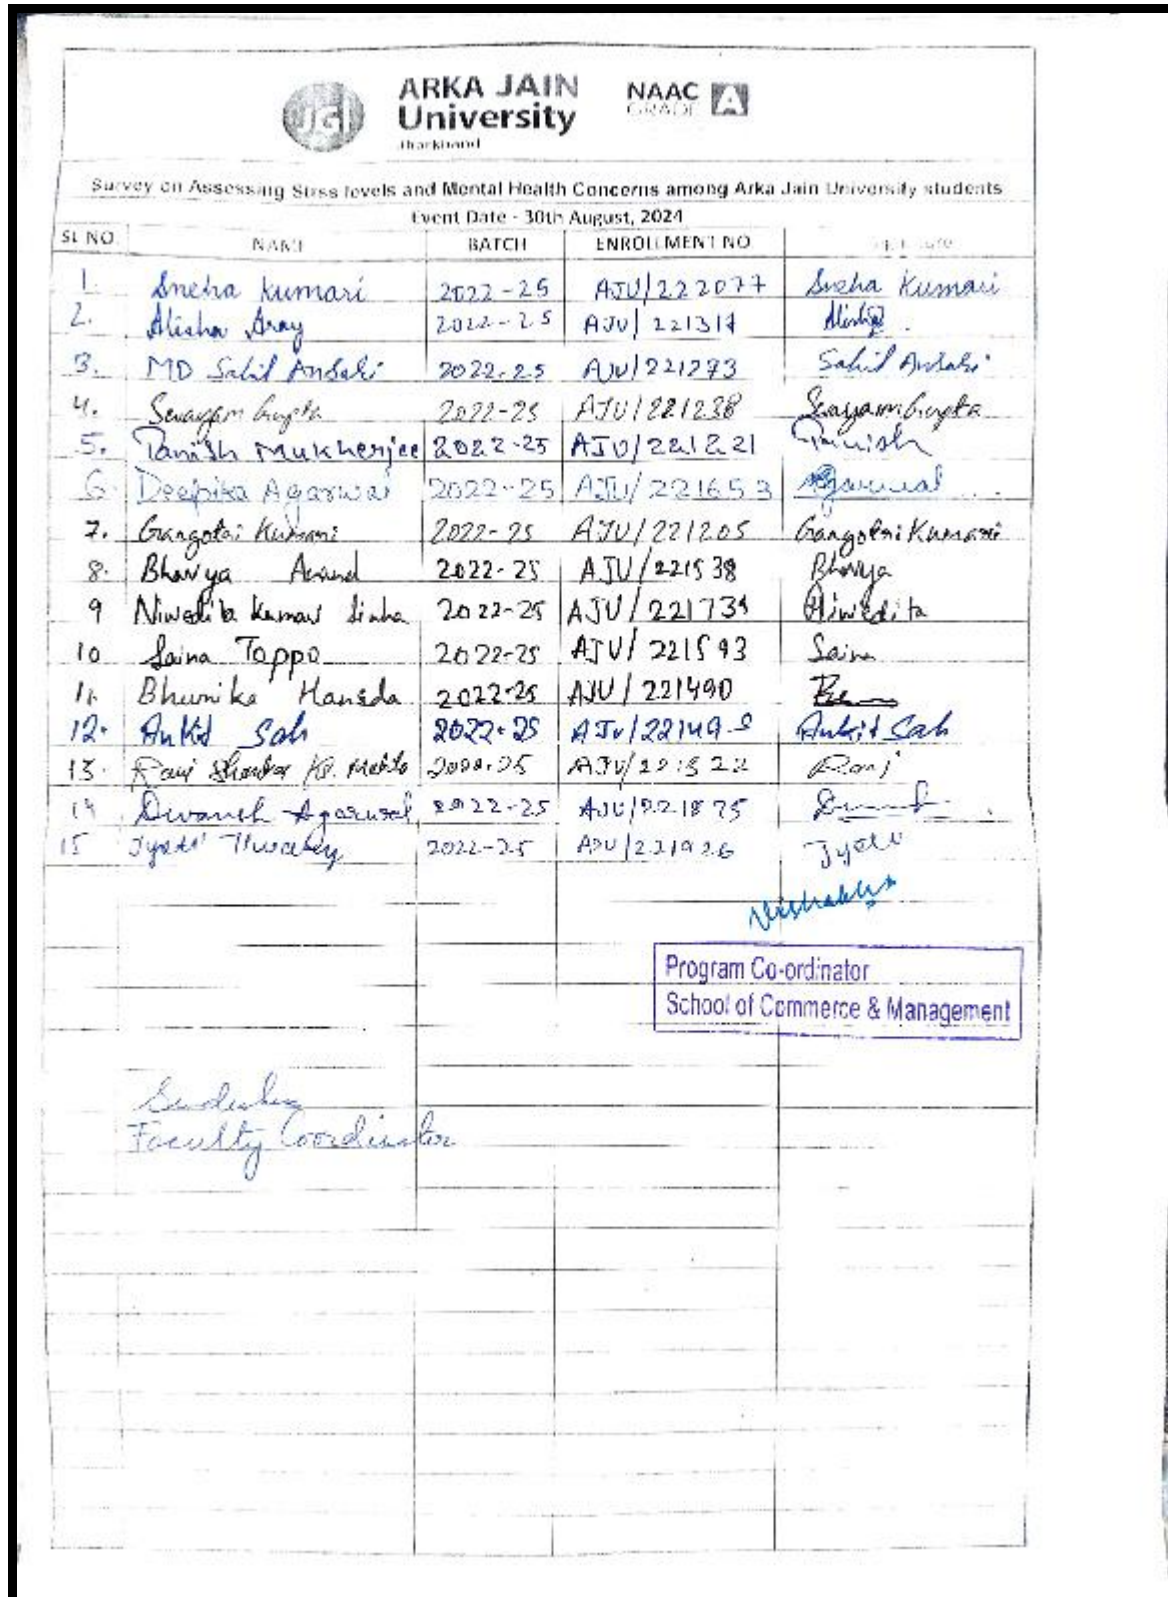 JGI
ARKA JAIN
University
Jharkhand
NAAC
GRADE A
Survey on Assessing Stress levels and Mental Health Concerns among Arka Jain University students
Event Date - 30th August, 2024
SL NO. NAME BATCH ENROLLMENT NO
1. Sneha Kumari 2022-25 AJU/222077 Sneha Kumari
2. Alisha Aray 2022-25 AJU/221317 Alisha
3. MD Sahil Ansari 2022-25 AJU/221273 Sahil Ansari
4. Swayam Gupta 2022-25 AJU/221238 Swayam Gupta
5. Tanish Mukherjee 2022-25 AJU/221221 Tanish
6. Deepika Agarwal 2022-25 AJU/221653 Agarwal
7. Gangotri Kumari 2022-25 AJU/221205 Gangotri Kumari
8. Bhavya Anand 2022-25 AJU/221538 Bhavya
9 Niwedita Kumari Sinha 2022-25 AJU/221734 Niwedita
10 Saina Toppo 2022-25 AJU/221593 Saina
11. Bhumika Hansda 2022-25 AJU/221490
12. Ankit Sah 2022-25 Ankit Sah
13. Ravi Shankar Kr. Mahto 2022-25 Ravi
14 Divansh Agarwal 2022-25 AJU/221875
15 Jyoti 2022-25 AJU/221926 Jyoti
Program Co-ordinator
School of Commerce & Management
Faculty Coordinator